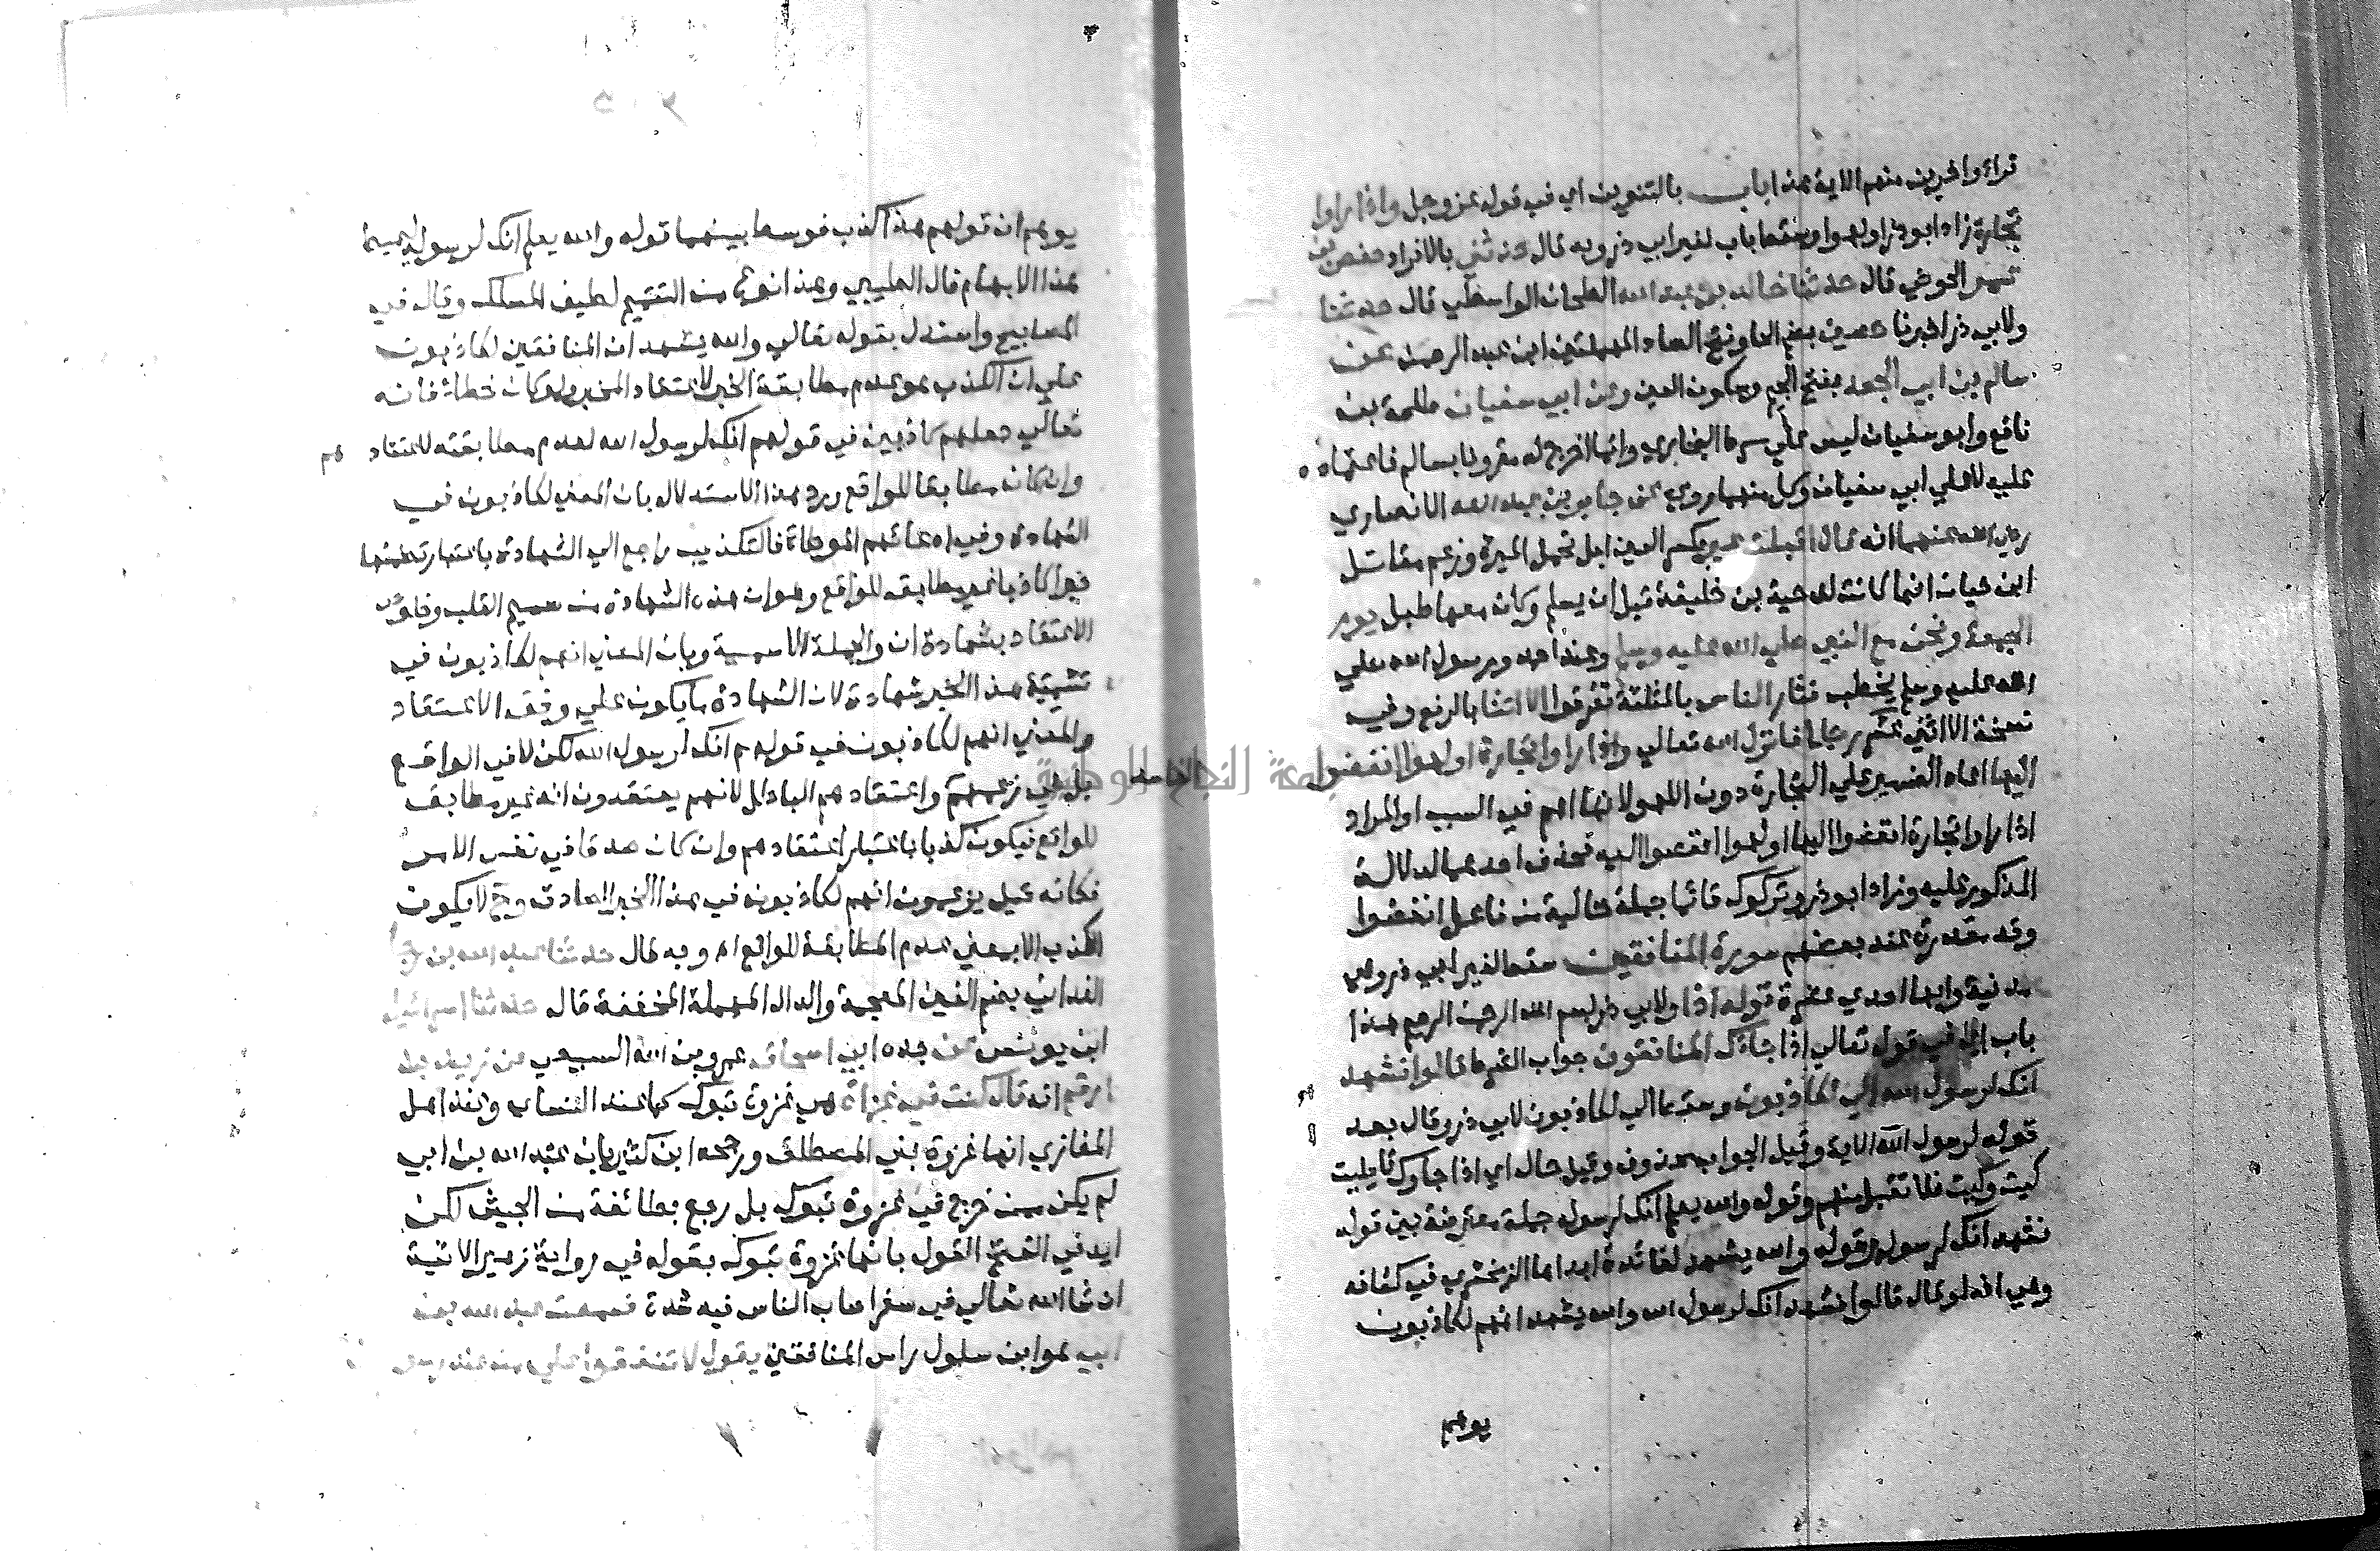 قراءة وآخرين منهم الاية هذا باب بالتنوين اي في قوله عز وجل واذا راوا
تجارة زاد ابو ذر او لهوا وسقط باب لغير ابي ذر وبه قال حدثني بالافراد حفص بن
عمر الحوضي قال حدثنا خالد بن عبد الله الطحان الواسطي قال حدثنا
ولابي ذر اخبرنا حصين بضم الحا وفتح الصاد المهملتين ابن عبد الرحمن عن
سالم بن ابي الجعد بفتح الجيم وسكون العين وعن ابي سفيان طلحة بن
نافع وابو سفيان ليس علي شرط البخاري وانما اخرج له مقرونا بسالم فاعتماده
عليه لا علي ابي سفيان وكل منهما روي عن جابر بن عبد الله الانصاري
رضي الله عنهما انه قال اقبلت عير بكسر العين ابل تحمل الميرة وزعم مقاتل
ابن حيان انها كانت لدحية بن خليفة قبل ان يسلم وكان معها طبل يوم
الجمعة ونحن مع النبي صلي الله عليه وسلم وعند احمد ورسول الله صلي
الله عليه وسلم يخطب فثار الناس بالمثلثة تفرقوا الا اثنا بالرفع وفي
نسخة الا اثني عشر رجلا فانزل الله تعالي واذا راوا تجارة او لهوا انفضوا
اليها اعاد الضمير علي التجارة دون اللهو لانها اهم في السبب او المراد
اذا راوا تجارة انفضوا اليها او لهوا انفضوا اليه فحذف احدهما لدلالة
المذكور عليه وزاد ابو ذر وتركوك قائما جملة حالية من فاعل انفضوا
وقد مقدرة عند بعضهم سورة المنافقين سقط لغير ابي ذر وهي
مدنية وايها احدي عشرة قوله اذا ولابي ذر بسم الله الرحمن الرحيم هذا
باب اي في قوله تعالي اذا جاءك المنافقون جواب الشرط قالوا نشهد
انك لرسول الله الي لكاذبون وسقط الي لكاذبون لابي ذر وقال بعد
قوله لرسول الله الاية وقيل الجواب محذوف وقيل حال اي اذا جاوك قايلين
كيت وكيت فلا تقبل منهم وقوله والله يعلم انك لرسوله جملة معترضة بين قوله
نشهد انك لرسول وقوله والله يشهد لفائدة ابداها الزمخشري في كشافه
وهي انه لو قال قالوا نشهد انك لرسول الله والله يشهد انهم لكاذبون
يوهم
يوهم ان قولهم هذا كذب فوسط بينهما قوله والله يعلم انك لرسوله ليميط
هذا الابهام قال الطيبي وهذا نوع من التتميم لطيف المسلك وقال في
المصابيح واستدل بقوله تعالي والله يشهد ان المنافقين لكاذبون
علي ان الكذب هو عدم مطابقة الخبر لاعتقاد المخبر ولو كان خطأ فانه
تعالي جعلهم كاذبين في قولهم انك لرسول الله لعدم مطابقته لاعتقادهم
وان كان مطابقا للواقع ورد هذا الاستدلال بان المعني لكاذبون في
الشهادة وفي ادعائهم المواطاة فالتكذيب راجع الي الشهادة باعتبار تضمنها
خبرا كاذبا غير مطابق للواقع وهو ان هذه الشهادة من صميم القلب وخلوص
الاعتقاد بشهادة ان والجملة الاسمية وبان المعني انهم لكاذبون في
تسمية هذا الخبر شهادة لان الشهادة ما يكون علي وفق الاعتقاد
والمعني انهم لكاذبون في قولهم انك لرسول الله لكن لا في الواقع
بل في زعمهم واعتقادهم الباطل لانهم يعتقدون انه غير مطابق
للواقع فيكون كذبا باعتبار اعتقادهم وان كان صدقا في نفس الامر
فكانه قيل يزعمون انهم لكاذبون في هذا الخبر الصادق وح لا يكون
الكذب الا بمعني عدم المطابقة للواقع اه وبه قال حدثنا عبد الله بن رجا
الغداني بضم الغين المعجمة والدال المهملة المخففة قال حدثنا اسرائيل
ابن يونس عن جده ابي اسحاق عمرو بن عبد الله السبيعي عن زيد بن
ارقم انه قال كنت في غزاة هي غزوة تبوك كما عند النسائي وعند اهل
المغازي انها غزوة بني المصطلق ورجحه ابن كثير بان عبد الله بن ابي
لم يكن ممن خرج في غزوة تبوك بل رجع بطائفة من الجيش لكن
ايد في الفتح القول بانها غزوة تبوك بقوله في رواية زهير الاتية
ان شا الله تعالي في سفر اصاب الناس فيه شدة فسمعت عبد الله بن
ابي هو ابن سلول راس المنافقين يقول لا تنفقوا علي من عند رسول
جامعة النجاح الوطنية